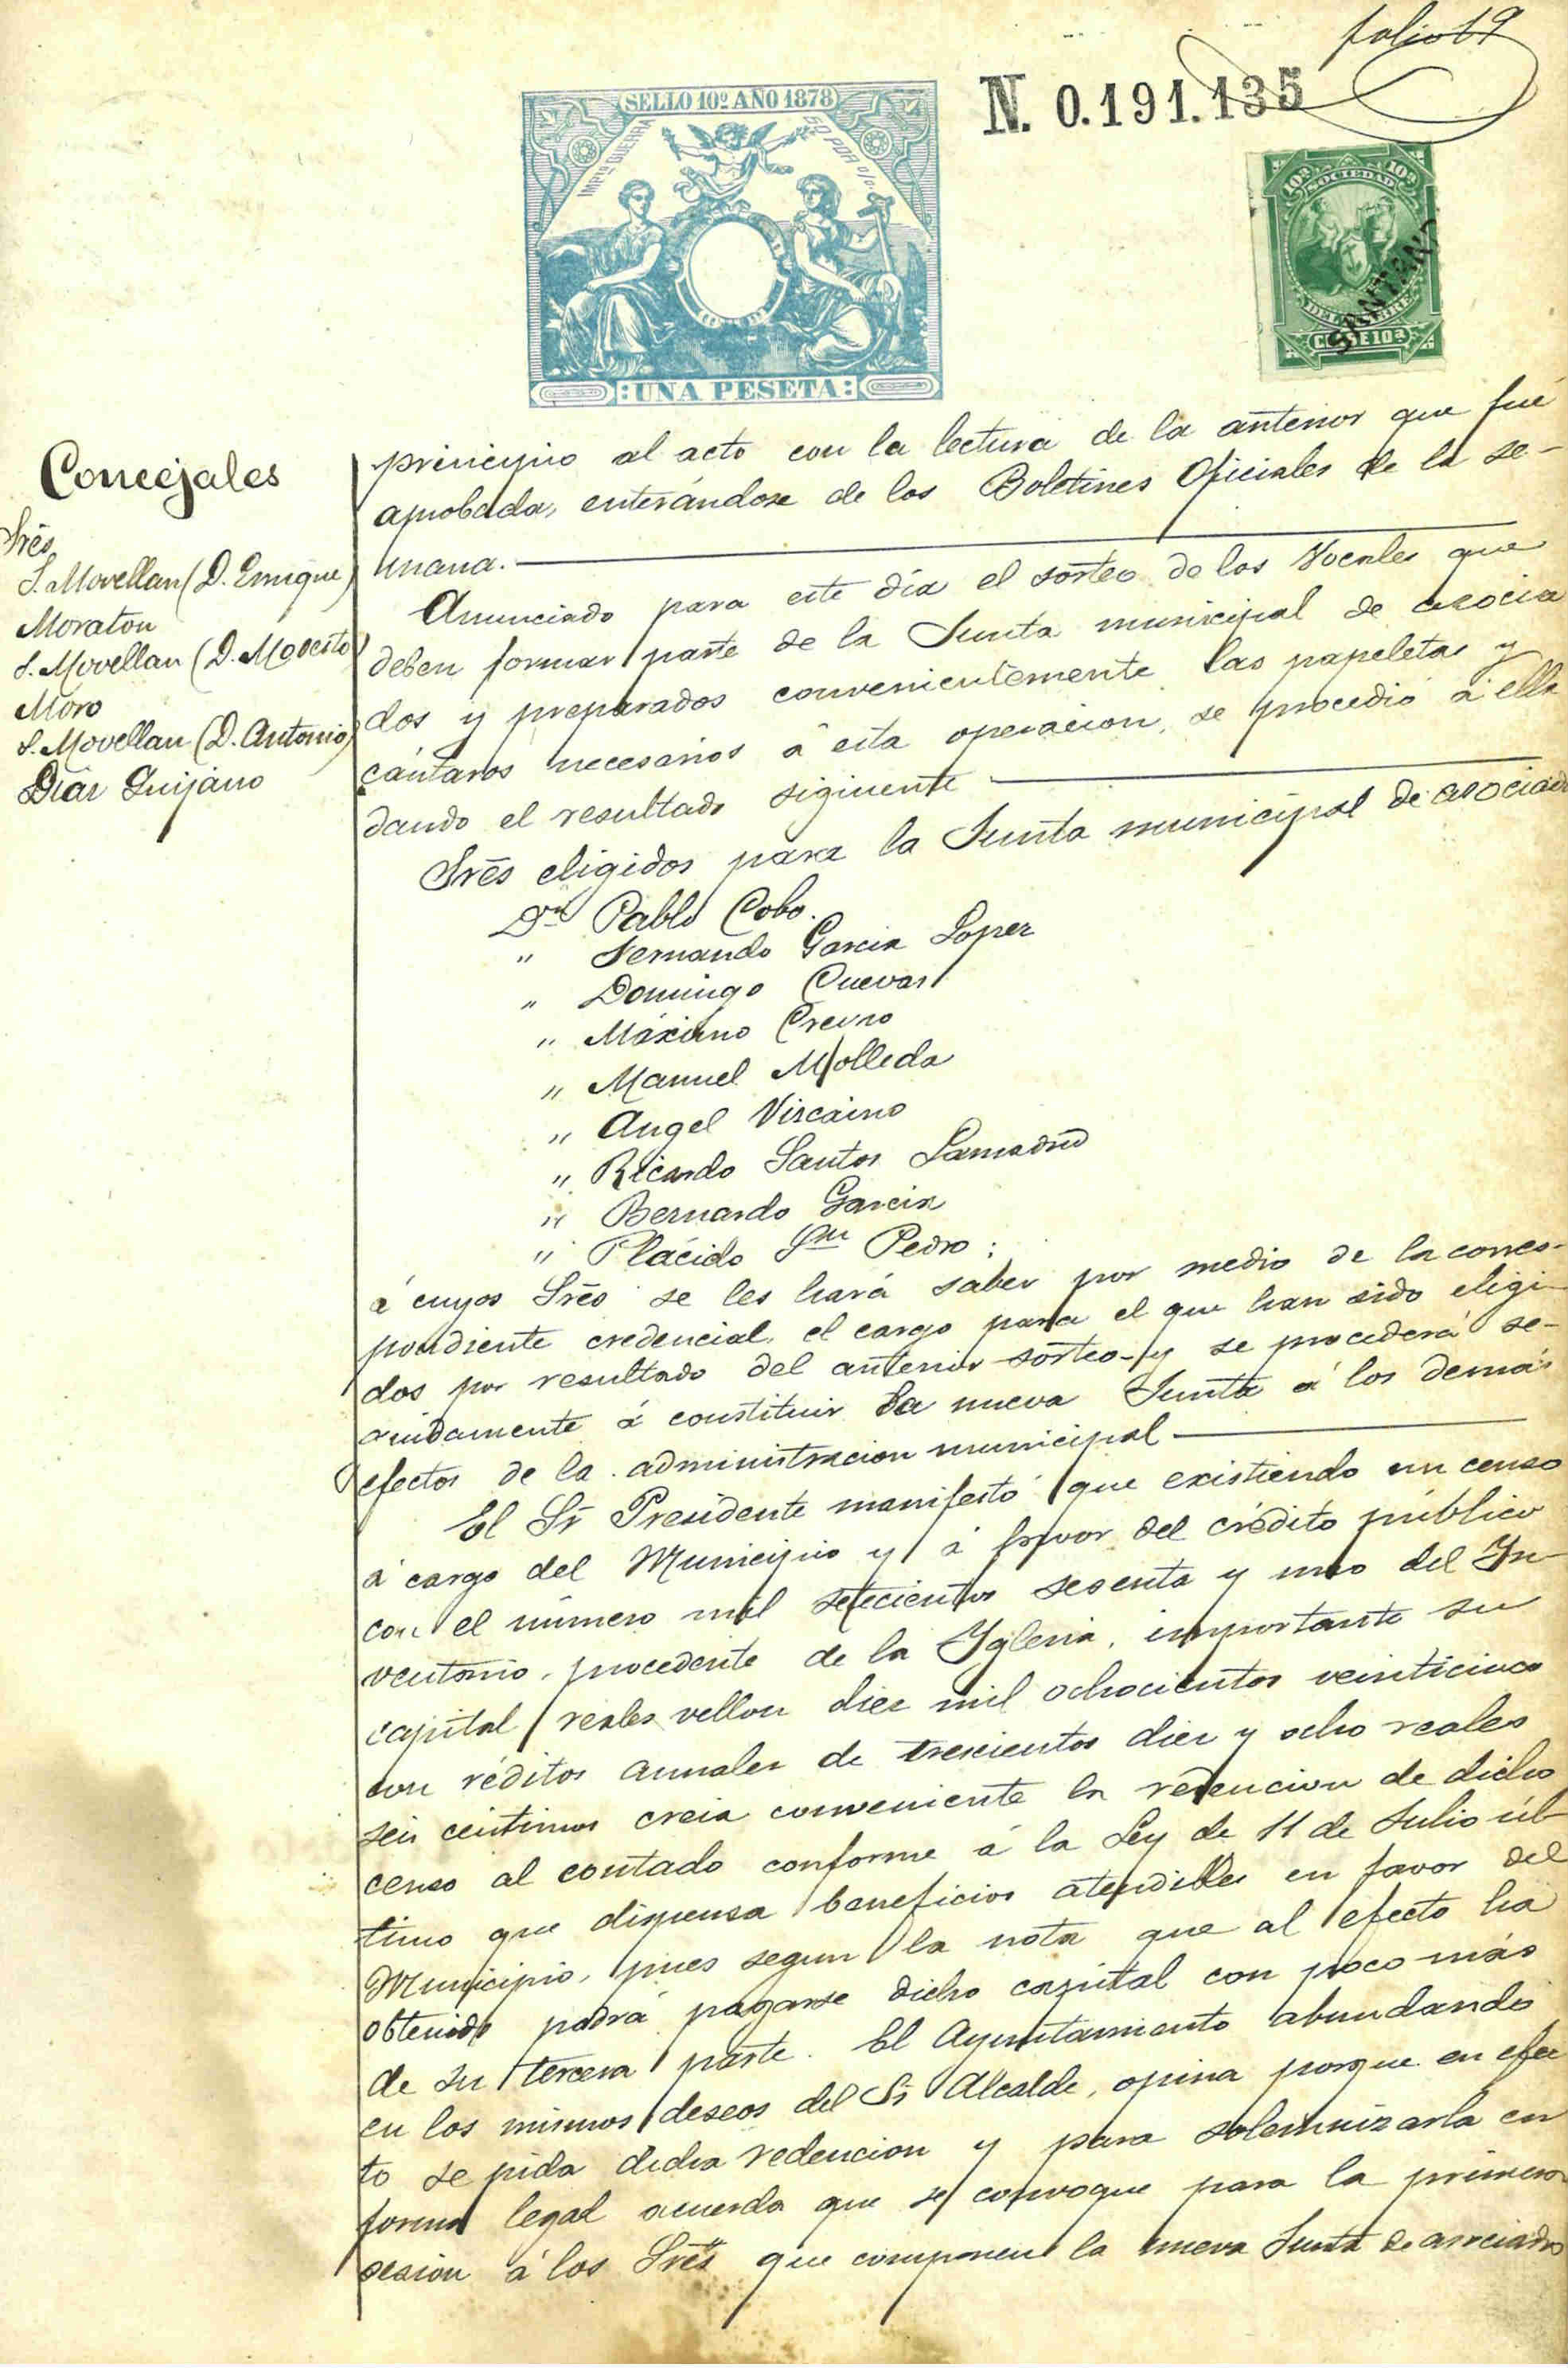 folio 19
N. 0.191.135
SELLO 10º AÑO 1878
IMPtO GUERRA
50 POR 0/0
UNA PESETA
10ª 10ª
SOCIEDAD
DEL TIMBRE
CLASE 10ª
SANTAND
Concejales
Srēs
S. Movellan (D. Enrique)
Moraton
S. Movellan (D. Modesto)
Moro
S. Movellan (D. Antonio)
Diaz Quijano
principio al acto con la lectura de la anterior que fué
aprobada, enterándose de los Boletines Oficiales de la se-
mana.
Anunciado para este dia el sorteo de los Vocales que
deben formar parte de la Junta municipal de asocia
dos y preparados convenientemente las papeletas y
cántaros necesarios á esta operacion, se procedió á ella
dando el resultado siguiente
Srēs eligidos para la Junta municipal de asociad
Dn Pablo Cobo.
" Fernando Garcia Lopez
" Domingo Cuevas
" Máximo Crespo
" Manuel Molleda
" Angel Vizcaino
" Ricardo Santos Lamadrid
" Bernardo Garcia
" Plácido Sn Pedro;
á cuyos Srēs se les hará saber por medio de la corres-
pondiente credencial, el cargo para el que han sido eligi-
dos por resultado del anterior sorteo y se procederá se-
guidamente á constituir la nueva Junta á los demás
efectos de la administracion municipal
El Sr Presidente manifestó que existiendo un censo
á cargo del Municipio y á favor del crédito público
con el número mil setecientos sesenta y uno del In-
ventario, procedente de la Yglesia, importante su
capital reales vellon diez mil ochocientos veinticinco
con réditos anuales de trescientos diez y ocho reales
seis céntimos creia conveniente la redencion de dicho
censo al contado conforme á la Ley de 11 de Julio úl-
timo que dispensa beneficios atendibles en favor del
Municipio, pues segun la nota que al efecto ha
obtenido podrá pagarse dicho capital con poco más
de su tercera parte. El Ayuntamiento abundando
en los mismos deseos del Sr Alcalde, opina porque en efec
to se pida dicha redencion y para solemnizarla en
forma legal acuerda que se convoque para la primera
sesion á los Srēs que componen la nueva Junta de asociados